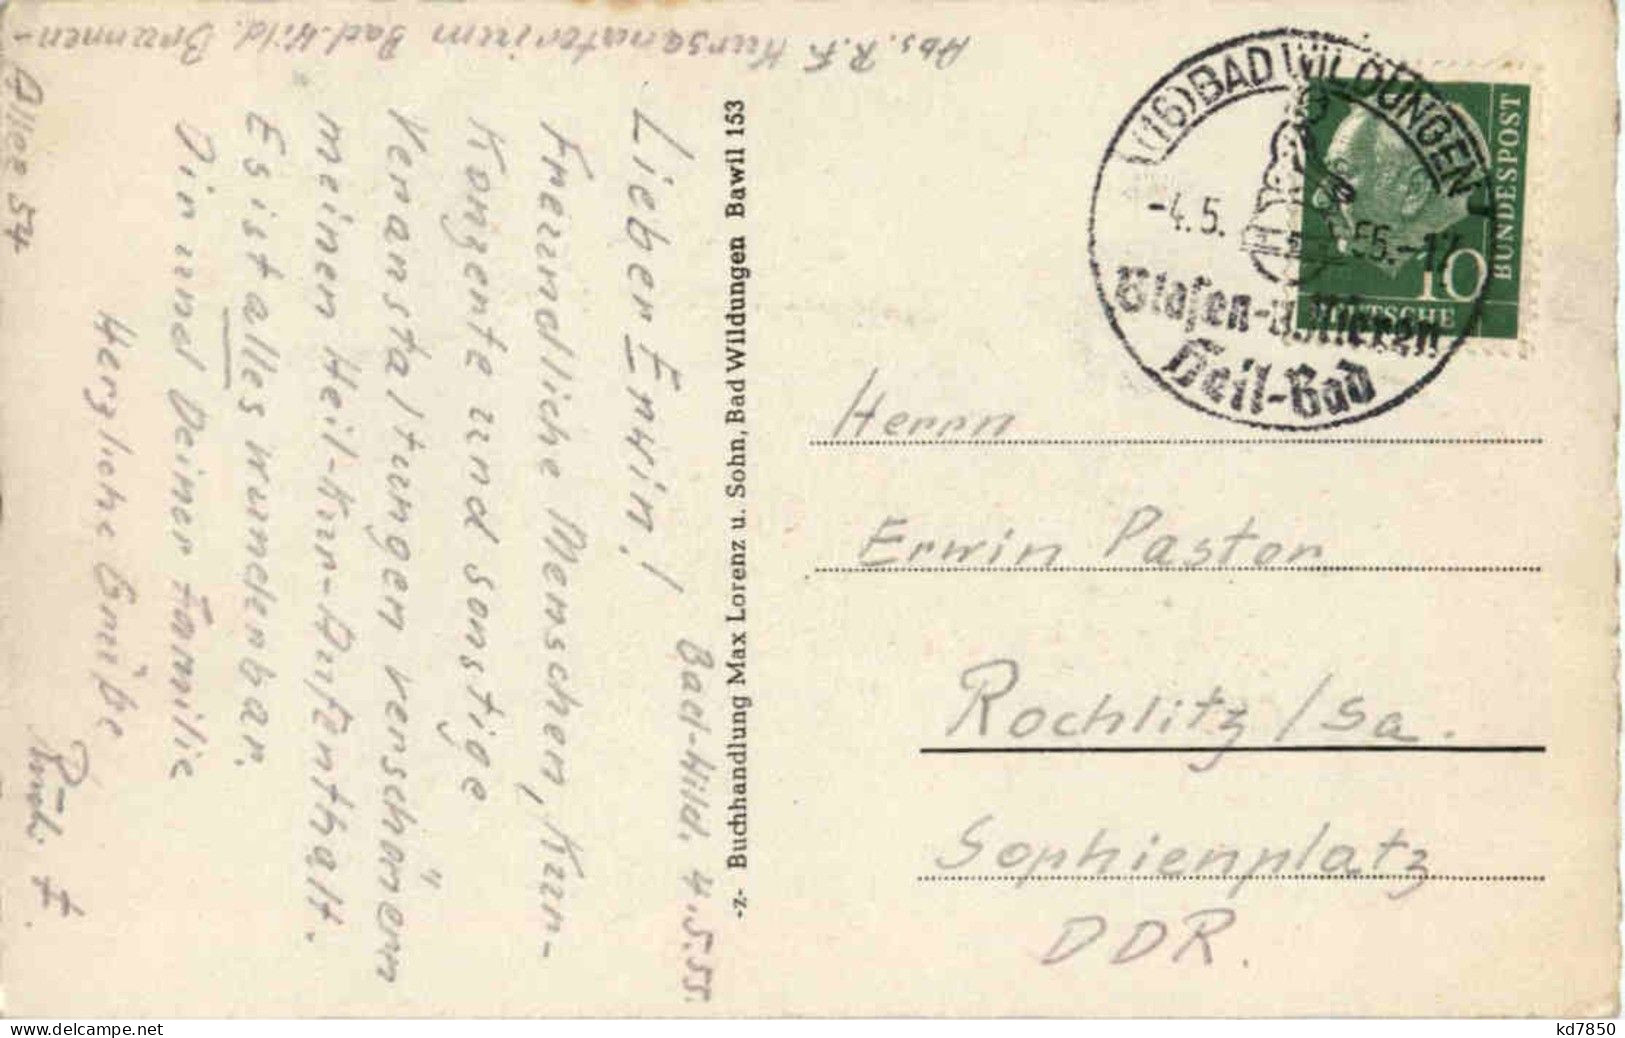 Abs. R. F. Kursanatorium Bad-Wild. Brunnen-
Allee 54
Bad-Wild. 4.5.55.
Lieber Erwin!
Freundliche Menschen, Kur-
Konzerte und sonstige
Veranstaltungen verschönern
meinen Heil-Kur-Aufenthalt.
Es ist alles wunderbar.
Dir und Deiner Familie
Herzliche Grüße
-z- Buchhandlung Max Lorenz u. Sohn, Bad Wildungen Bawil 153
(16) BAD WILDUNGEN
-4.5.55.-17
Blasen-u. Nieren
Heil-Bad
DEUTSCHE
BUNDESPOST
10
Herrn
Erwin Pastor
Rochlitz/Sa.
Sophienplatz
DDR.
kd7850